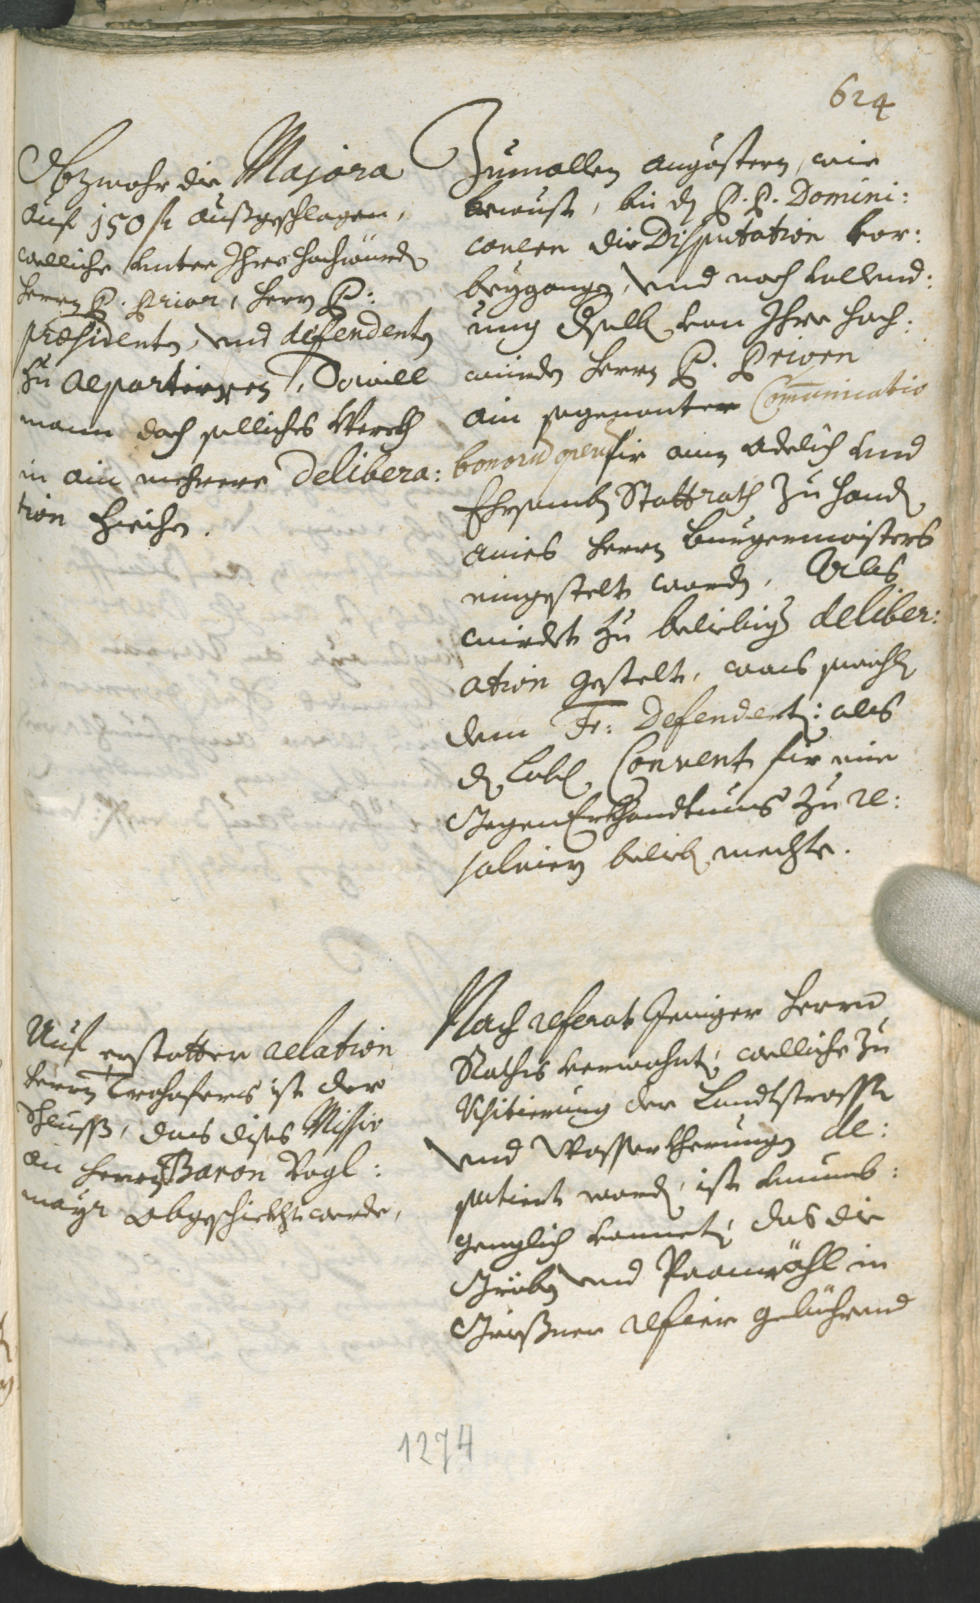 624
Obzwahr die Majora
auf 150 fl außgeschlagen,
welliche unter Ihro hochwürd
Herrn P. Prior, Herrn P:
præsidenten, und defendenten
zu repartieren, So will
mann doch solliches Werch
in ain mehrere Delibera:
tion ziechen.
Zumallen angestern, wie
bewust, bei den P.P. Domini:
canern die Disputation vor:
beygangen, und nach vollend:
ung derselb von Ihro hoch:
würden Herrn P. Priorn
ain sogenanter Communicatio
bonorum operum für ainen Adelich und
Ehrsamben Stattrath zu Handen
aines Herrn Burgermaisters
eingestelt worden. Als
wirdet zu beliebigen deliber:
ation gestelt, waß sowohl
dem Fr: Defendenten: als
dem Löbl. Convent für eine
Gegen Erkhandtnus zu re:
solvieren belieben mechte.
Auf erstatten relation
Herrn Trohofers ist der
Schluss, das dises Missiv
an Herrn Baron Vogl:
mayr abgeschickht werde,
Nach referat Jeniger Herrn
Raths verwohnten, welliche zu
Visitierung der Landtstrassen
und Wasser therungen de:
putiert worden, ist umb:
genglich vonneten, das die
Gräben und Paanwähl in
Grießner refier gebührend
1274